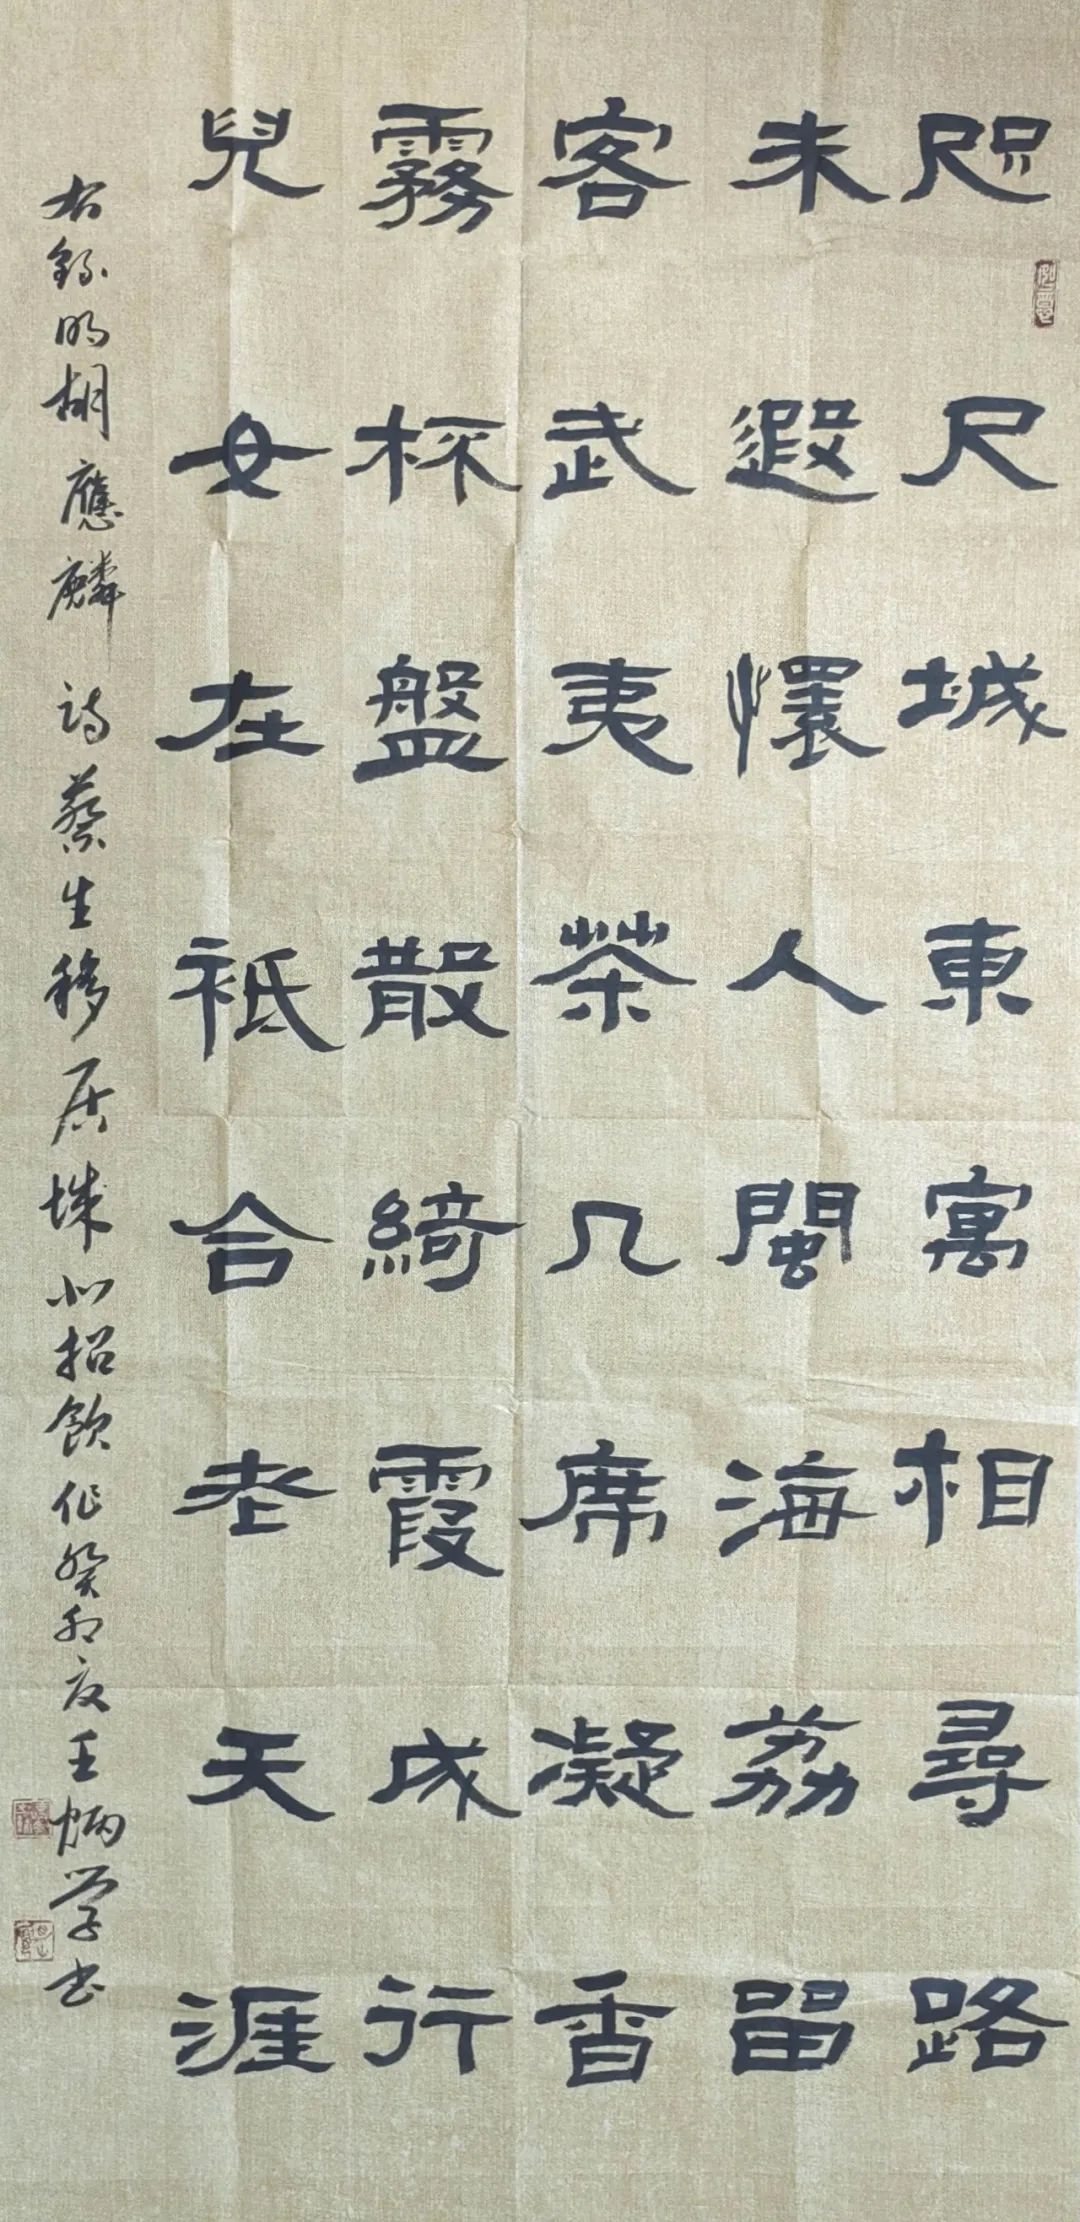 咫尺城東寓相尋路
未遐懷人閩海荔留
客武夷茶几席凝香
霧杯盤散綺霞成行
兒女在祇合老天涯
右錄明胡應麟詩蔡生移居城北招飲作癸卯夏王炳学书